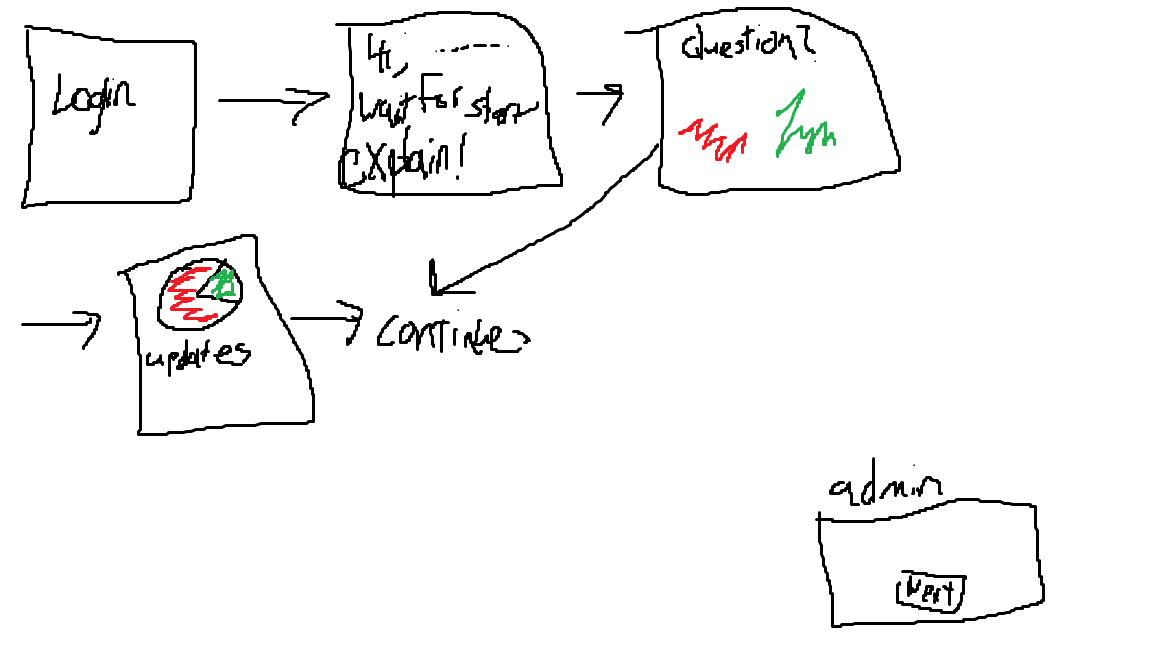 Login
Hi, ------
wait for start
explain!
Question?
updates
continues
admin
Next